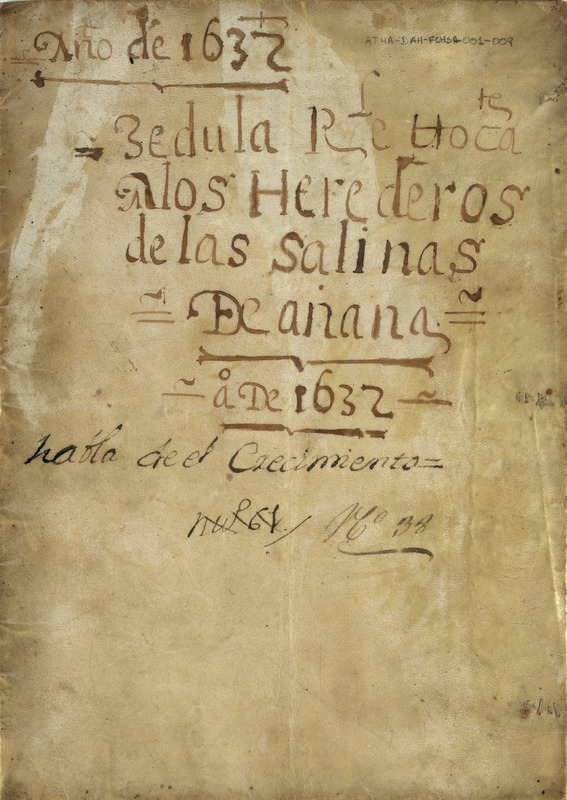 Año de 1632
ATHA-DAH-FCHSA-001-009
= Zedula Rl q̃ ttocate
A los Herederos
de las Salinas
= De añana =
- año De 1632 -
habla de el Crecimiento =
Nº 38